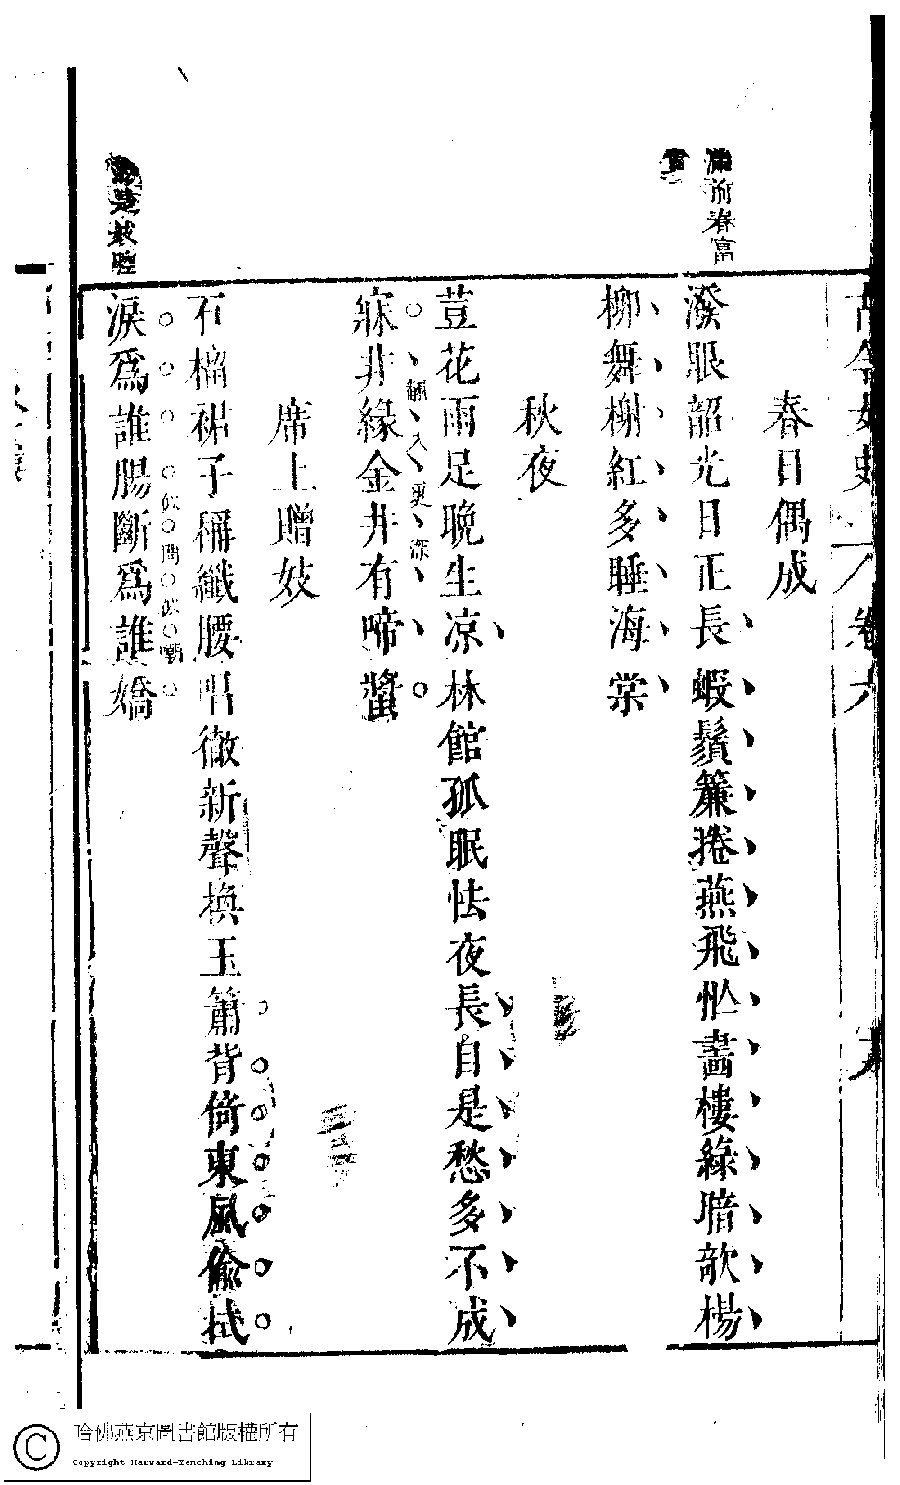 古今女史 卷六
春日偶成
潑眼韶光日正長蝦鬚簾捲燕飛忙畫樓綠暗歌楊
柳舞榭紅多睡海棠
秋夜
荳花雨足晚生凉林館孤眠怯夜長自是愁多不成
寐井緣金井有啼螿
席上贈妓
石榴裙子稱纖腰唱徹新聲換玉簫背倚東風偷拭
淚爲誰腸斷爲誰嬌
前春富
哈佛燕京圖書館版權所有
Copyright Harvard-Yenching Library